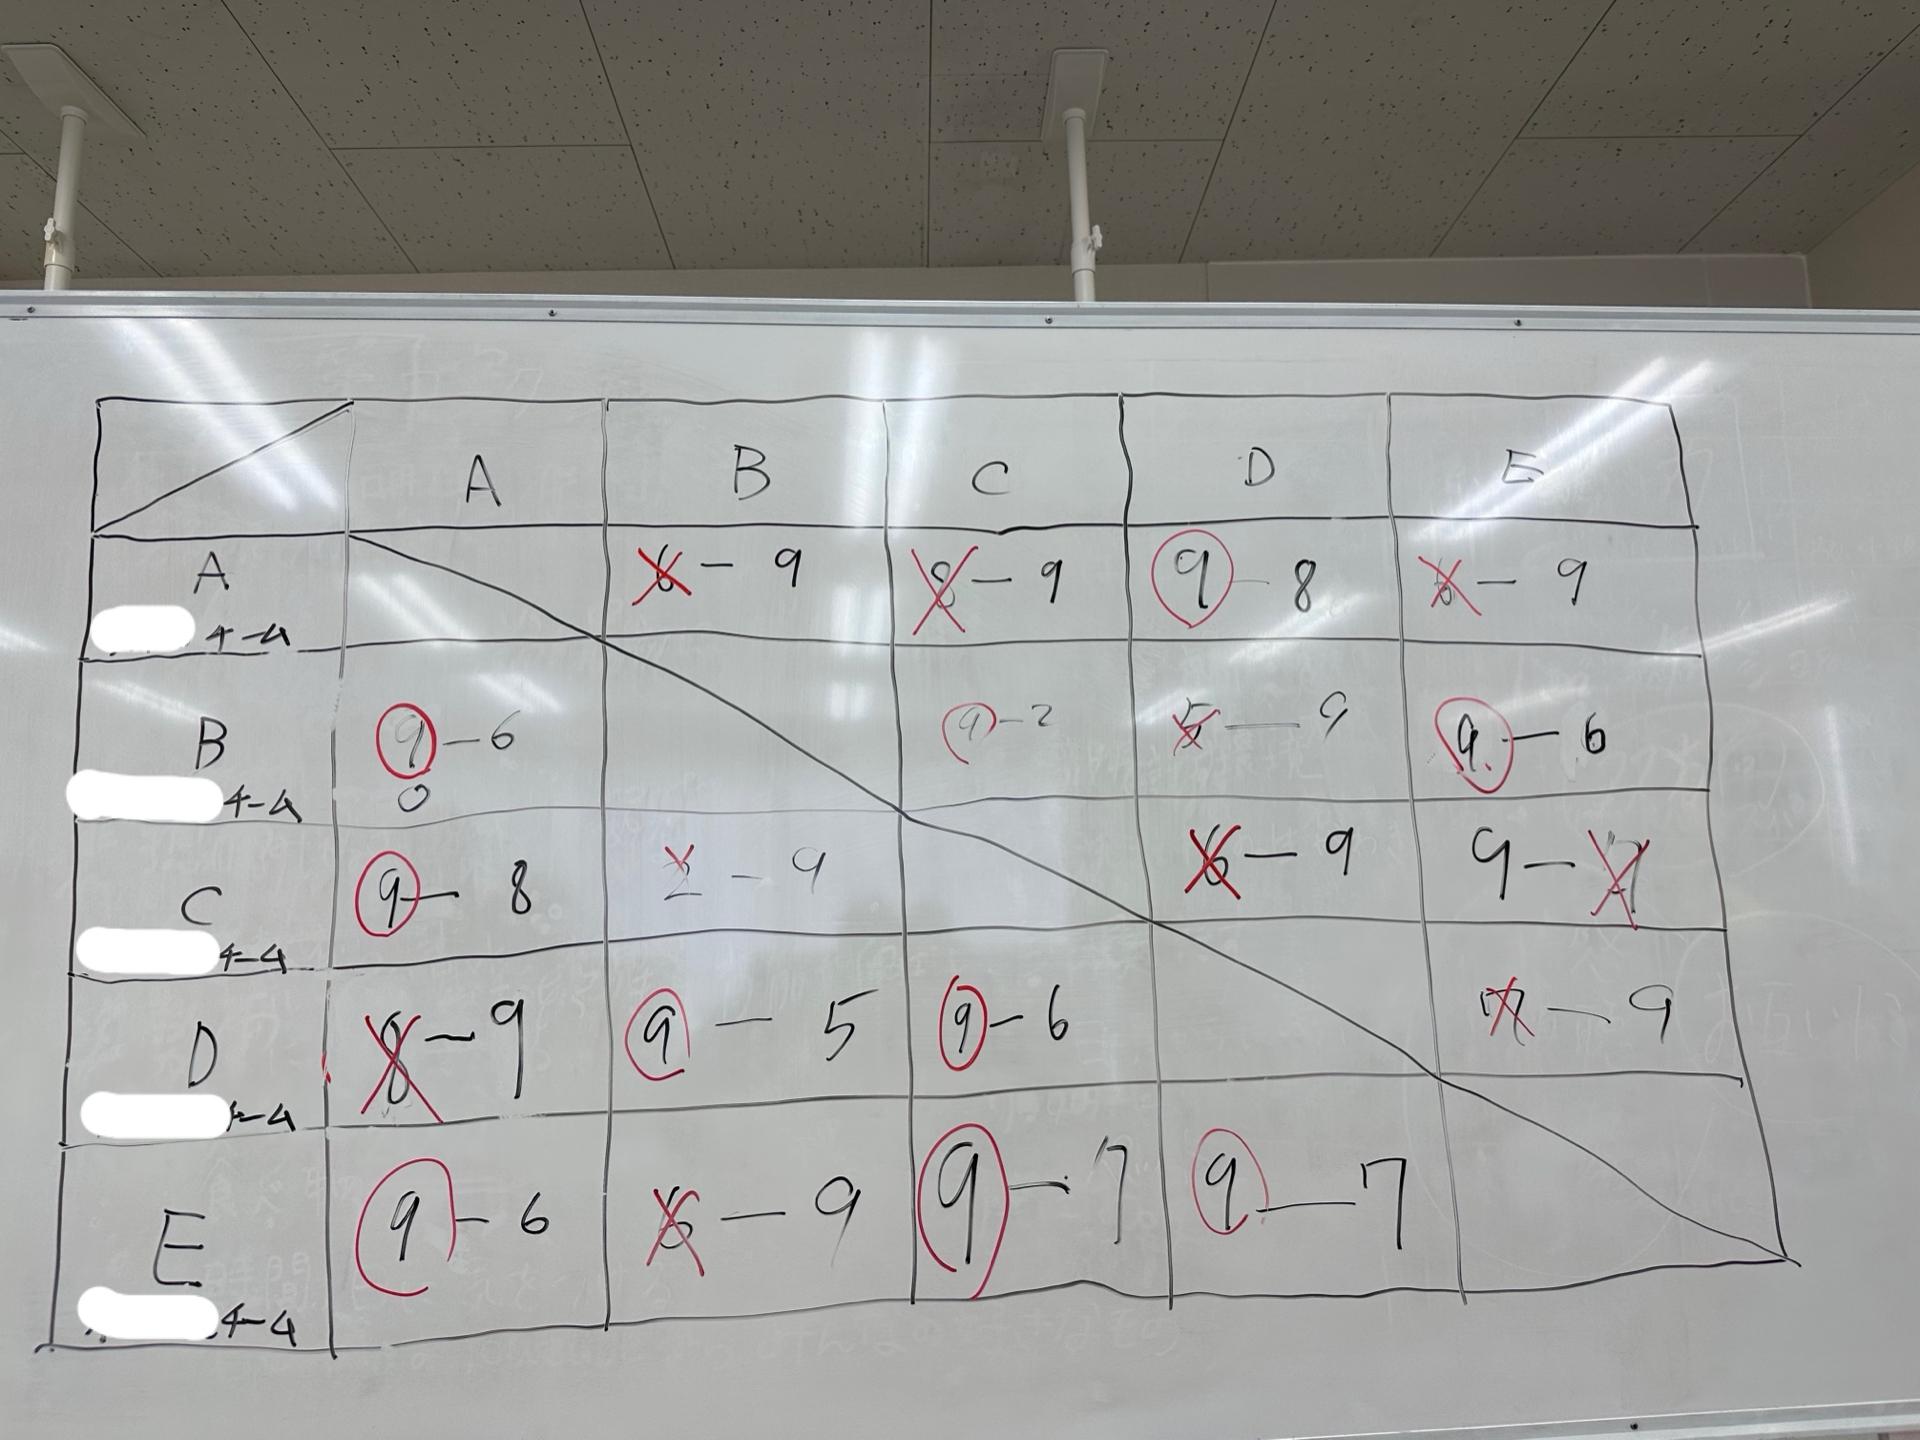 A B C D E
A 6 - 9 8 - 9 9 - 8 6 - 9
4-4
B 9 - 6 9 - 2 5 - 9 9 - 6
4-4 0
C 9 - 8 2 - 9 6 - 9 9 - 7
4-4
D 8 - 9 9 - 5 9 - 6 7 - 9
4-4
E 9 - 6 6 - 9 9 - 7 9 - 7
4-4